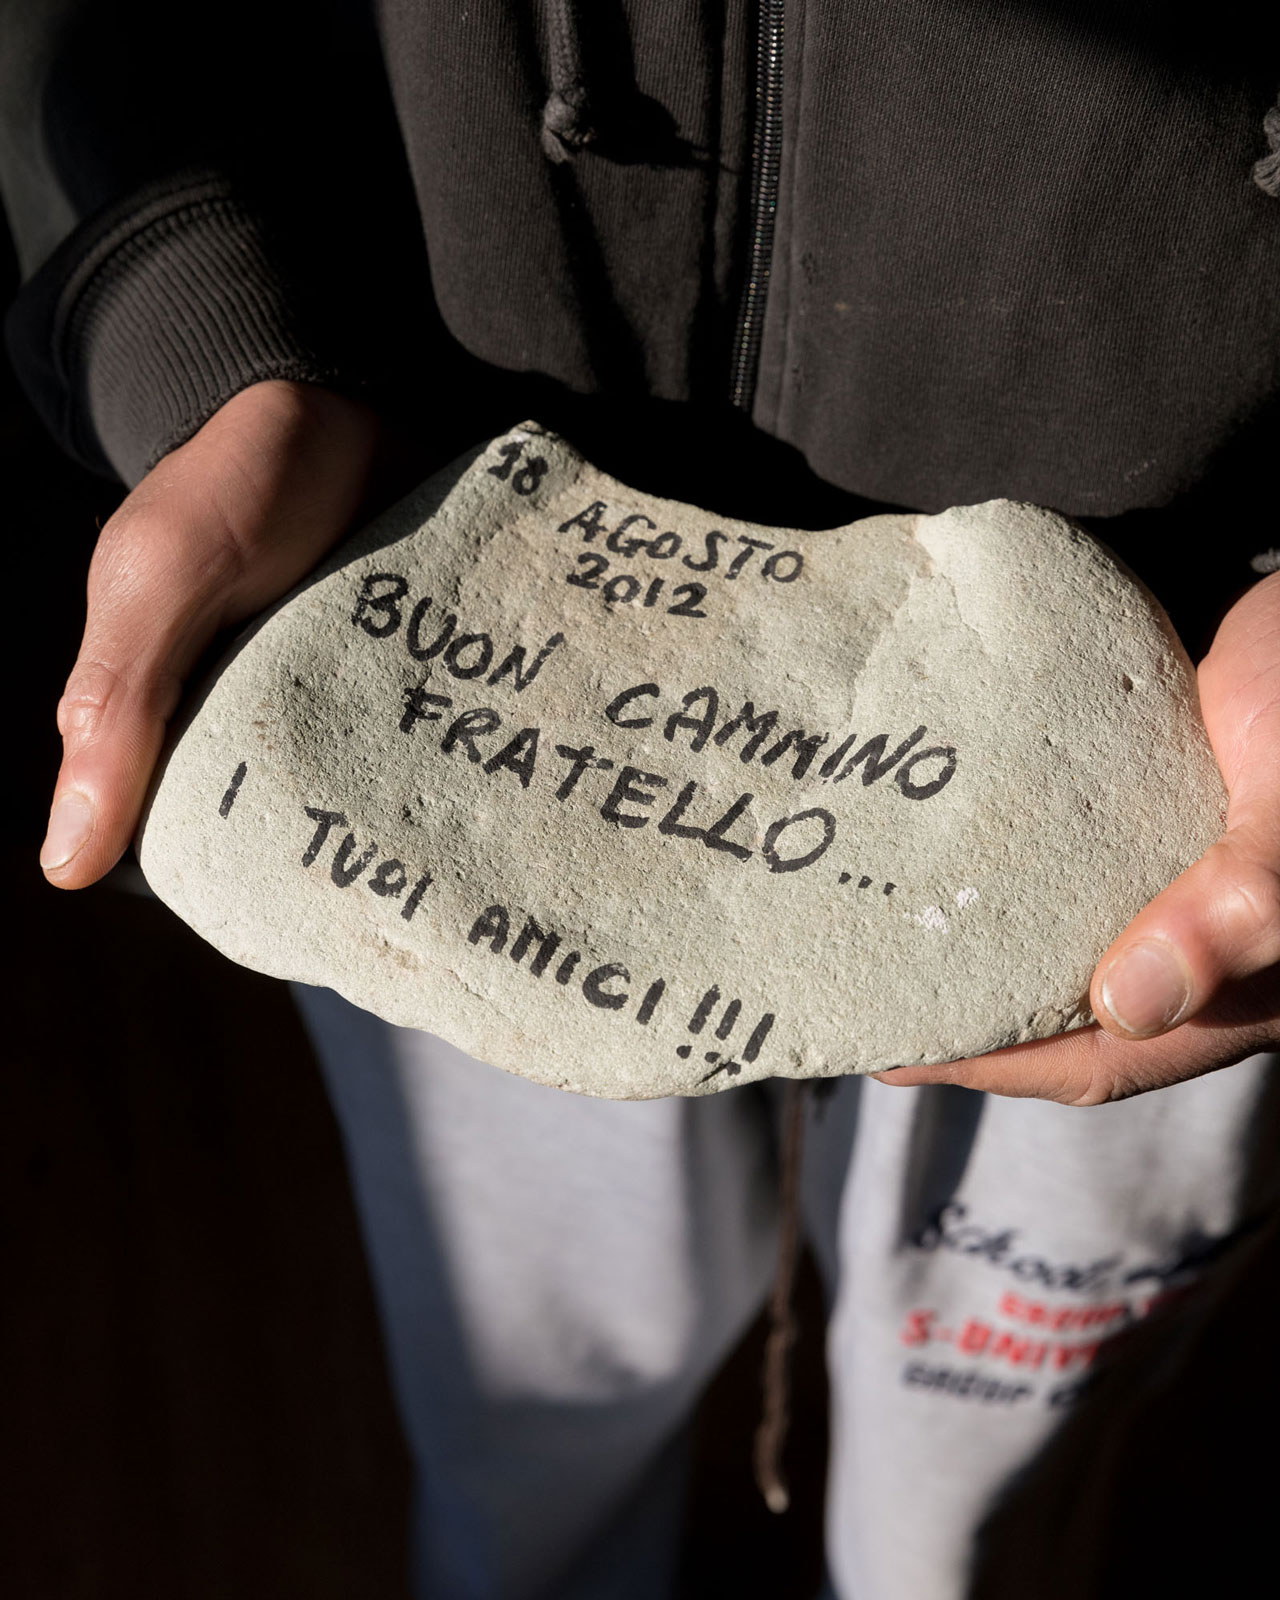 18
AGOSTO
2012
BUON CAMMINO
FRATELLO...
I TUOI AMICI !!!
School
S-UNIV
GROUP